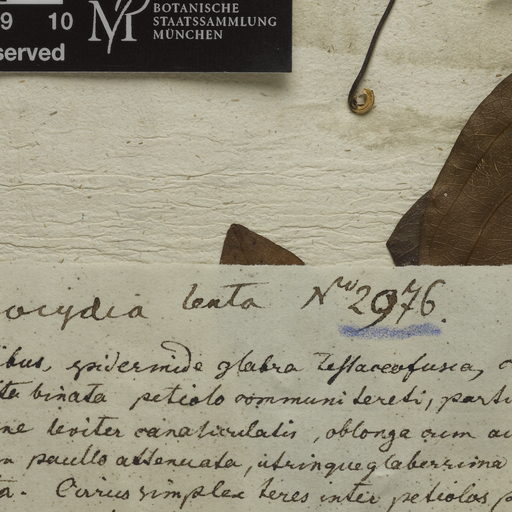 9 10 BOTANISCHE
served STAATSSAMMLUNG
MÜNCHEN
ocydia lenta Nro 2976.
ibus, epidermide glabra testaceofusca,
binata petiolo communi tereti, parti
ne leviter canaliculatis, oblonga cum
paullo attenuata, utrinque glaberrima
ta. Cirrus simplex teres inter petiolos p